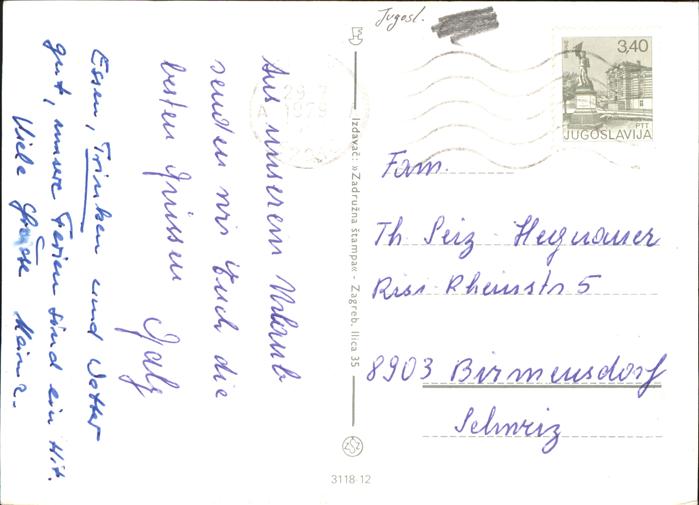 Aus unserem Urlaub
senden wir Euch die
besten Grüssen
Essen, Trinken und Wetter
gut, unsere Ferien sind ein Hit.
Viele Grüsse
Jugosl.
29.7
1979
3,40
PTT
JUGOSLAVIJA
Fam.
Th. Seiz-Hegnauer
Rheinstr 5
8903 Birmensdorf
Schweiz
Izdavač: »Zadružna štampa« - Zagreb, Ilica 35
3118-12